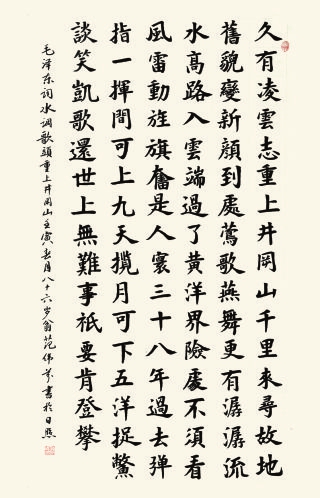 久有凌雲志重上井岡山千里來尋故地
舊貌變新顏到處鶯歌燕舞更有潺潺流
水高路入雲端過了黃洋界險處不須看
風雷動旌旗奮是人寰三十八年過去弹
指一揮間可上九天攬月可下五洋捉鱉
談笑凱歌還世上無難事祇要肯登攀
毛泽东词水调歌頭重上井岡山壬寅春月八十六岁翁范書於日照